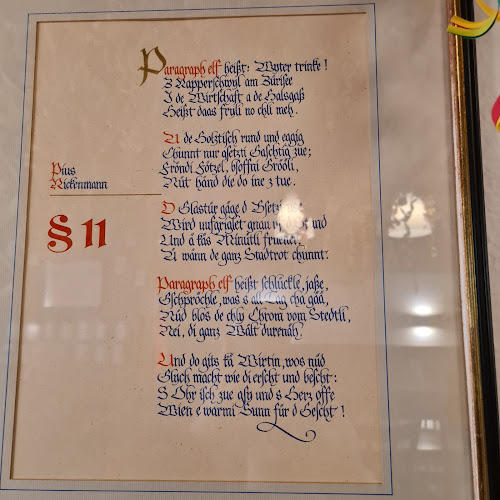 Paragraph elf heißt: Wyter trinke!
Z Rapperschwyl am Zürisee
I de Wirtschaft a de Halsgaß
Heißt daas früli no chli meh.
A de Holztisch rund und eggig
Chunnt nur gsetzti Gaschtig zue;
Fröndi Fötzel, bsoffni Gröoli,
Nüt händ die do ine z tue.
Pius
Rickenmann
§ 11
D Glastür gäge d
Wird ufgriglet gnau und
Und ä käs Minütli früener,
Ä wänn de ganz Stadtrot chunnt.
Paragraph elf heißt schlückle, jaße,
Gschpröchle, was s all Tag cha gää,
Nüd blos de chly Chrom vom Stedtli,
Nei, di ganz Wält durenäh.
Und do gits kä Wirtin, wos nüd
Glych macht wie di erscht und bescht:
S Ohr isch zue gsy und s Herz offe
Wien e warmi Sunn für d Gescht!